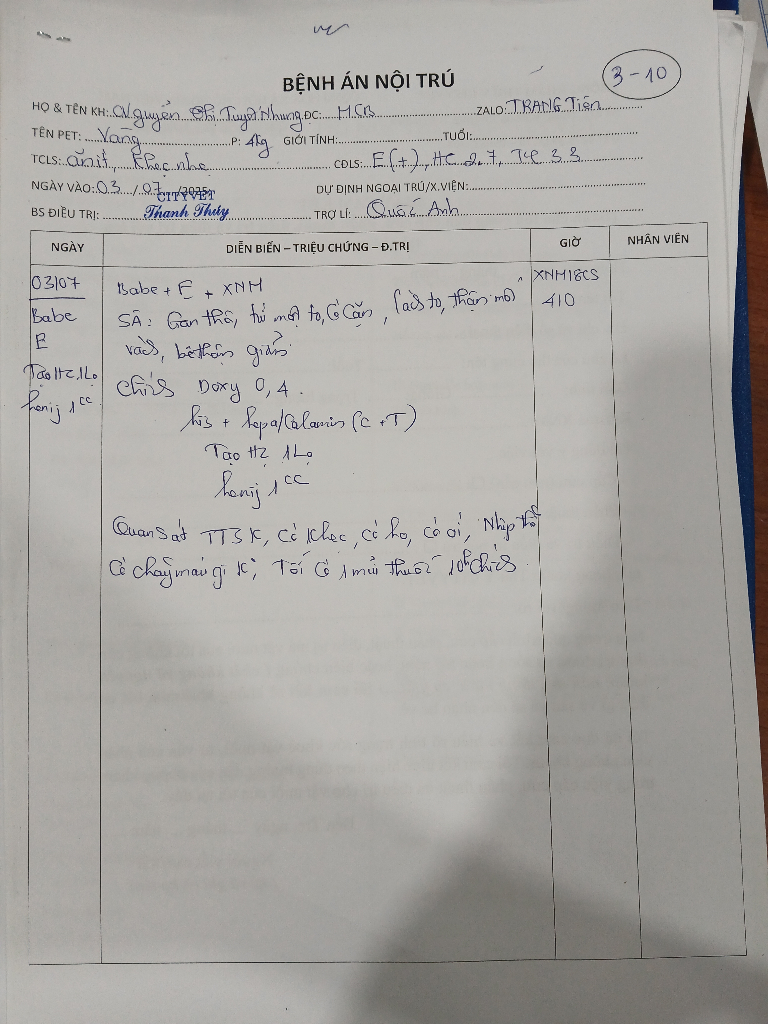 BỆNH ÁN NỘI TRÚ
3-10
HỌ & TÊN KH: Nguyễn Thị Tuyết Nhung ĐC: HCB ZALO: TRANG Tiên
TÊN PET: Vàng P: 4kg GIỚI TÍNH: TUỔI:
TCLS: ăn ít, Khẹc nhẹ CĐLS: E(+), HC 2.7, 33
NGÀY VÀO: 03/07/2025 DỰ ĐỊNH NGOẠI TRÚ/X.VIỆN:
CITYVET
BS ĐIỀU TRỊ: Thanh Thúy TRỢ LÍ: Quốc Anh
NGÀY DIỄN BIẾN – TRIỆU CHỨNG – Đ.TRỊ GIỜ NHÂN VIÊN
03/07 Babe + E + XNM XNM18CS
Babe SÂ: Gan thô, túi mật to, có cặn, to, thận mô 410
E bể thận giãn
Tạo Hz 1Lọ Doxy 0,4.
1cc + hepa/Calamin (C+T)
Tạo Hz 1Lọ
1cc
Quan sát TTSK, Có Khẹc, có ho, có ói, Nhịp thở
Có chảy máu gì K, Tối Có 1 mũi thuốc 10h